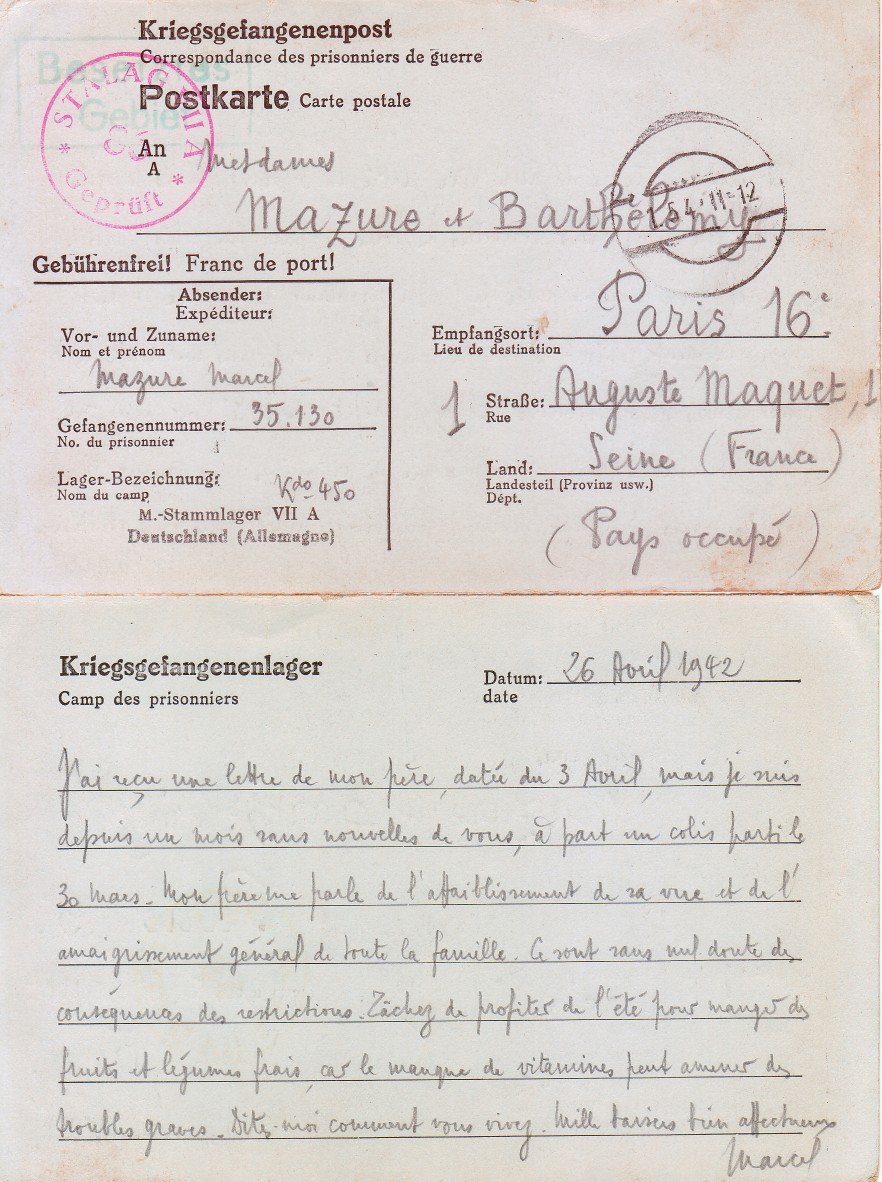 Kriegsgefangenenpost
Correspondance des prisonniers de guerre
Postkarte Carte postale
STALAG VII A
Geprüft
An
A
Mesdames
Mazure et Barthélemy
1.5.4 11-12
Gebührenfrei! Franc de port!
Absender:
Expéditeur:
Vor- und Zuname:
Nom et prénom
Mazure Marcel
Gefangenennummer: 35.130
No. du prisonnier
Lager-Bezeichnung:
Nom du camp
Kdo 450
M.-Stammlager VII A
Deutschland (Allemagne)
Empfangsort: Paris 16e
Lieu de destination
1 Straße: Auguste Maquet, 1
Rue
Land: Seine (France)
Landesteil (Provinz usw.)
Dépt.
(Pays occupé)
Kriegsgefangenenlager
Camp des prisonniers
Datum: 26 Avril 1942
date
J'ai reçu une lettre de mon père, datée du 3 Avril, mais je suis
depuis un mois sans nouvelles de vous, à part un colis parti le
30 mars. Mon père me parle de l'affaiblissement de sa vue et de l'
amaigrissement général de toute la famille. Ce sont sans nul doute des
conséquences des restrictions. Tâchez de profiter de l'été pour manger des
fruits et légumes frais, car le manque de vitamines peut amener des
troubles graves. Dites-moi comment vous vivez. Mille baisers bien affectueux
Marcel